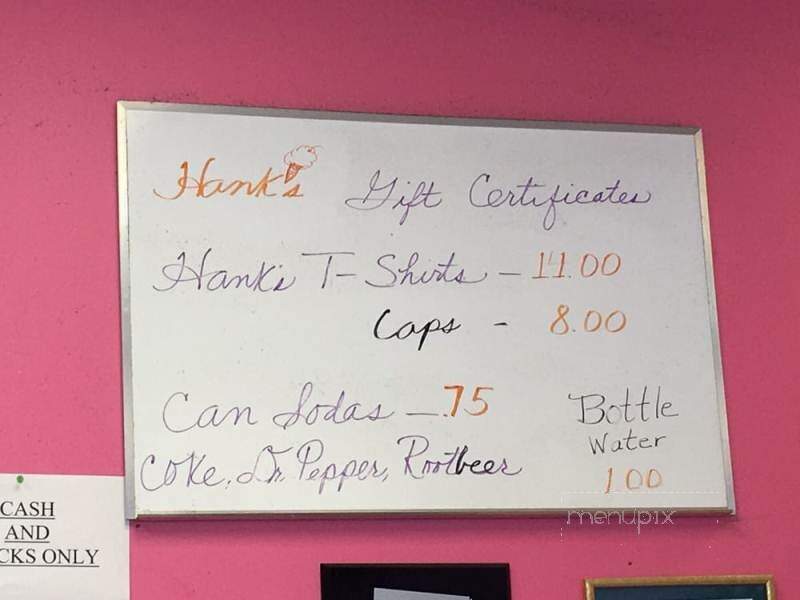 Hank's Gift Certificates
Hank's T-Shirts - 11.00
Caps - 8.00
Can Sodas - .75
Coke, Dr. Pepper, Rootbeer
Bottle
Water
1.00
CASH
AND
CKS ONLY
menupix